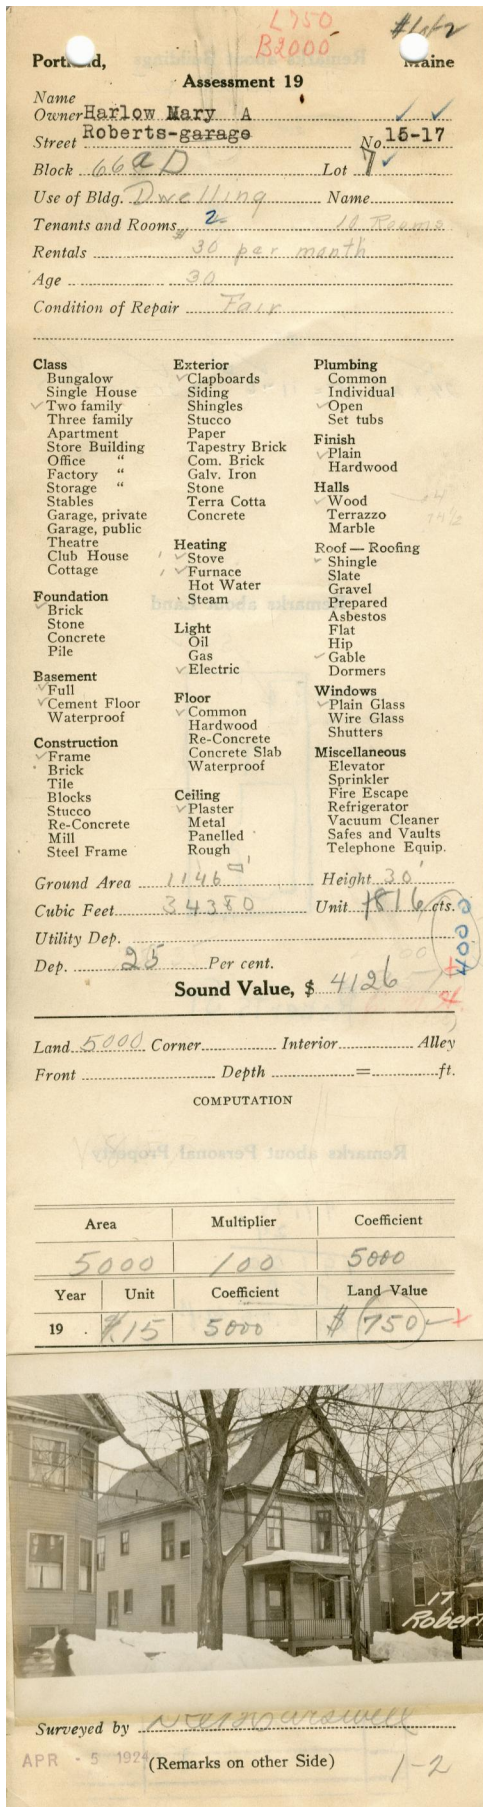 L750
B2000
#1 of 2
Portland, Maine
Assessment 19
Name
Owner Harlow Mary A
Street Roberts-garage No. 15-17
Block 66a D Lot 7
Use of Bldg. Dwelling Name
Tenants and Rooms 2 10 Rooms
Rentals $ 30 per month
Age 30
Condition of Repair Fair
Class
Bungalow
Single House
✓ Two family
Three family
Apartment
Store Building
Office "
Factory "
Storage "
Stables
Garage, private
Garage, public
Theatre
Club House
Cottage
Foundation
✓ Brick
Stone
Concrete
Pile
Basement
✓ Full
✓ Cement Floor
Waterproof
Construction
✓ Frame
Brick
Tile
Blocks
Stucco
Re-Concrete
Mill
Steel Frame
Exterior
✓ Clapboards
Siding
Shingles
Stucco
Paper
Tapestry Brick
Com. Brick
Galv. Iron
Stone
Terra Cotta
Concrete
Heating
1 ✓ Stove
1 ✓ Furnace
Hot Water
Steam
Light
Oil
Gas
✓ Electric
Floor
✓ Common
Hardwood
Re-Concrete
Concrete Slab
Waterproof
Ceiling
✓ Plaster
Metal
Panelled
Rough
Plumbing
Common
Individual
✓ Open
Set tubs
Finish
✓ Plain
Hardwood
Halls
✓ Wood
Terrazzo
Marble
Roof — Roofing
✓ Shingle
Slate
Gravel
Prepared
Asbestos
Flat
Hip
✓ Gable
Dormers
Windows
✓ Plain Glass
Wire Glass
Shutters
Miscellaneous
Elevator
Sprinkler
Fire Escape
Refrigerator
Vacuum Cleaner
Safes and Vaults
Telephone Equip.
Ground Area 1146 □' Height 30'
Cubic Feet 34380 Unit 16 cts.
4000
Utility Dep.
Dep. 25 Per cent.
Sound Value, $ 4126
Land 5000 Corner Interior Alley
Front Depth = ft.
COMPUTATION
Area Multiplier Coefficient
5000 100 5000
Year Unit Coefficient Land Value
19 . .15 5000 $ 750
17
Rober
Surveyed by
APR - 5 1924 (Remarks on other Side) 1-2